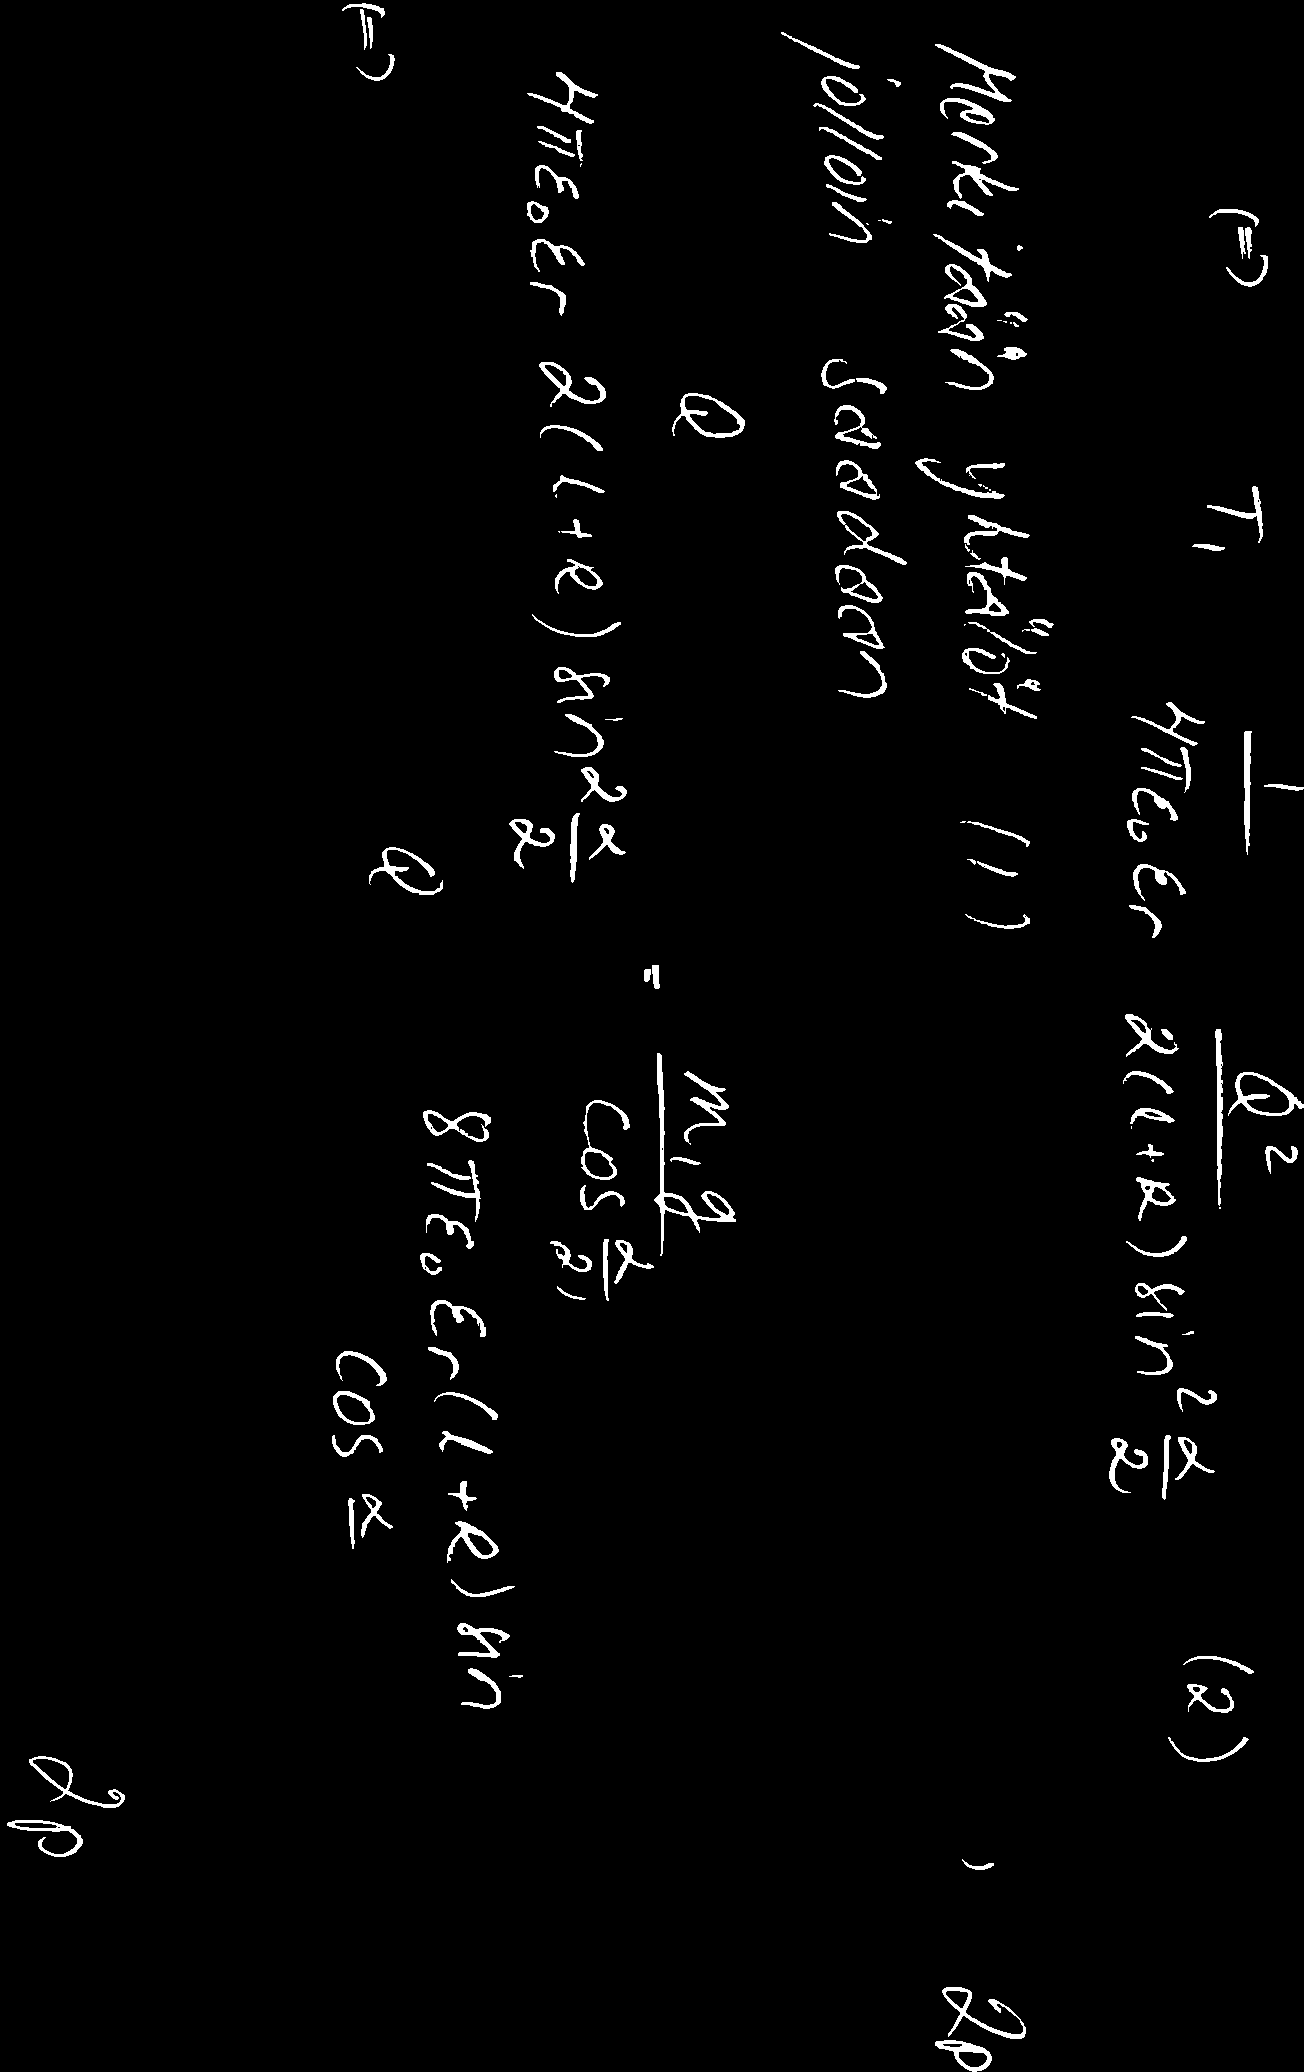 (=) T₁ 1/(4πε₀εr) Q²/(2(L+R) sin² α/2) (2)
Merkitään yhtälöt (1) , 2p
jolloin saadaan
Q
4πε₀εr 2(L+R) sin² α/2 = m₁g/cos α/2,
(=) Q 8πε₀εr(L+R) sin
cos α
2p